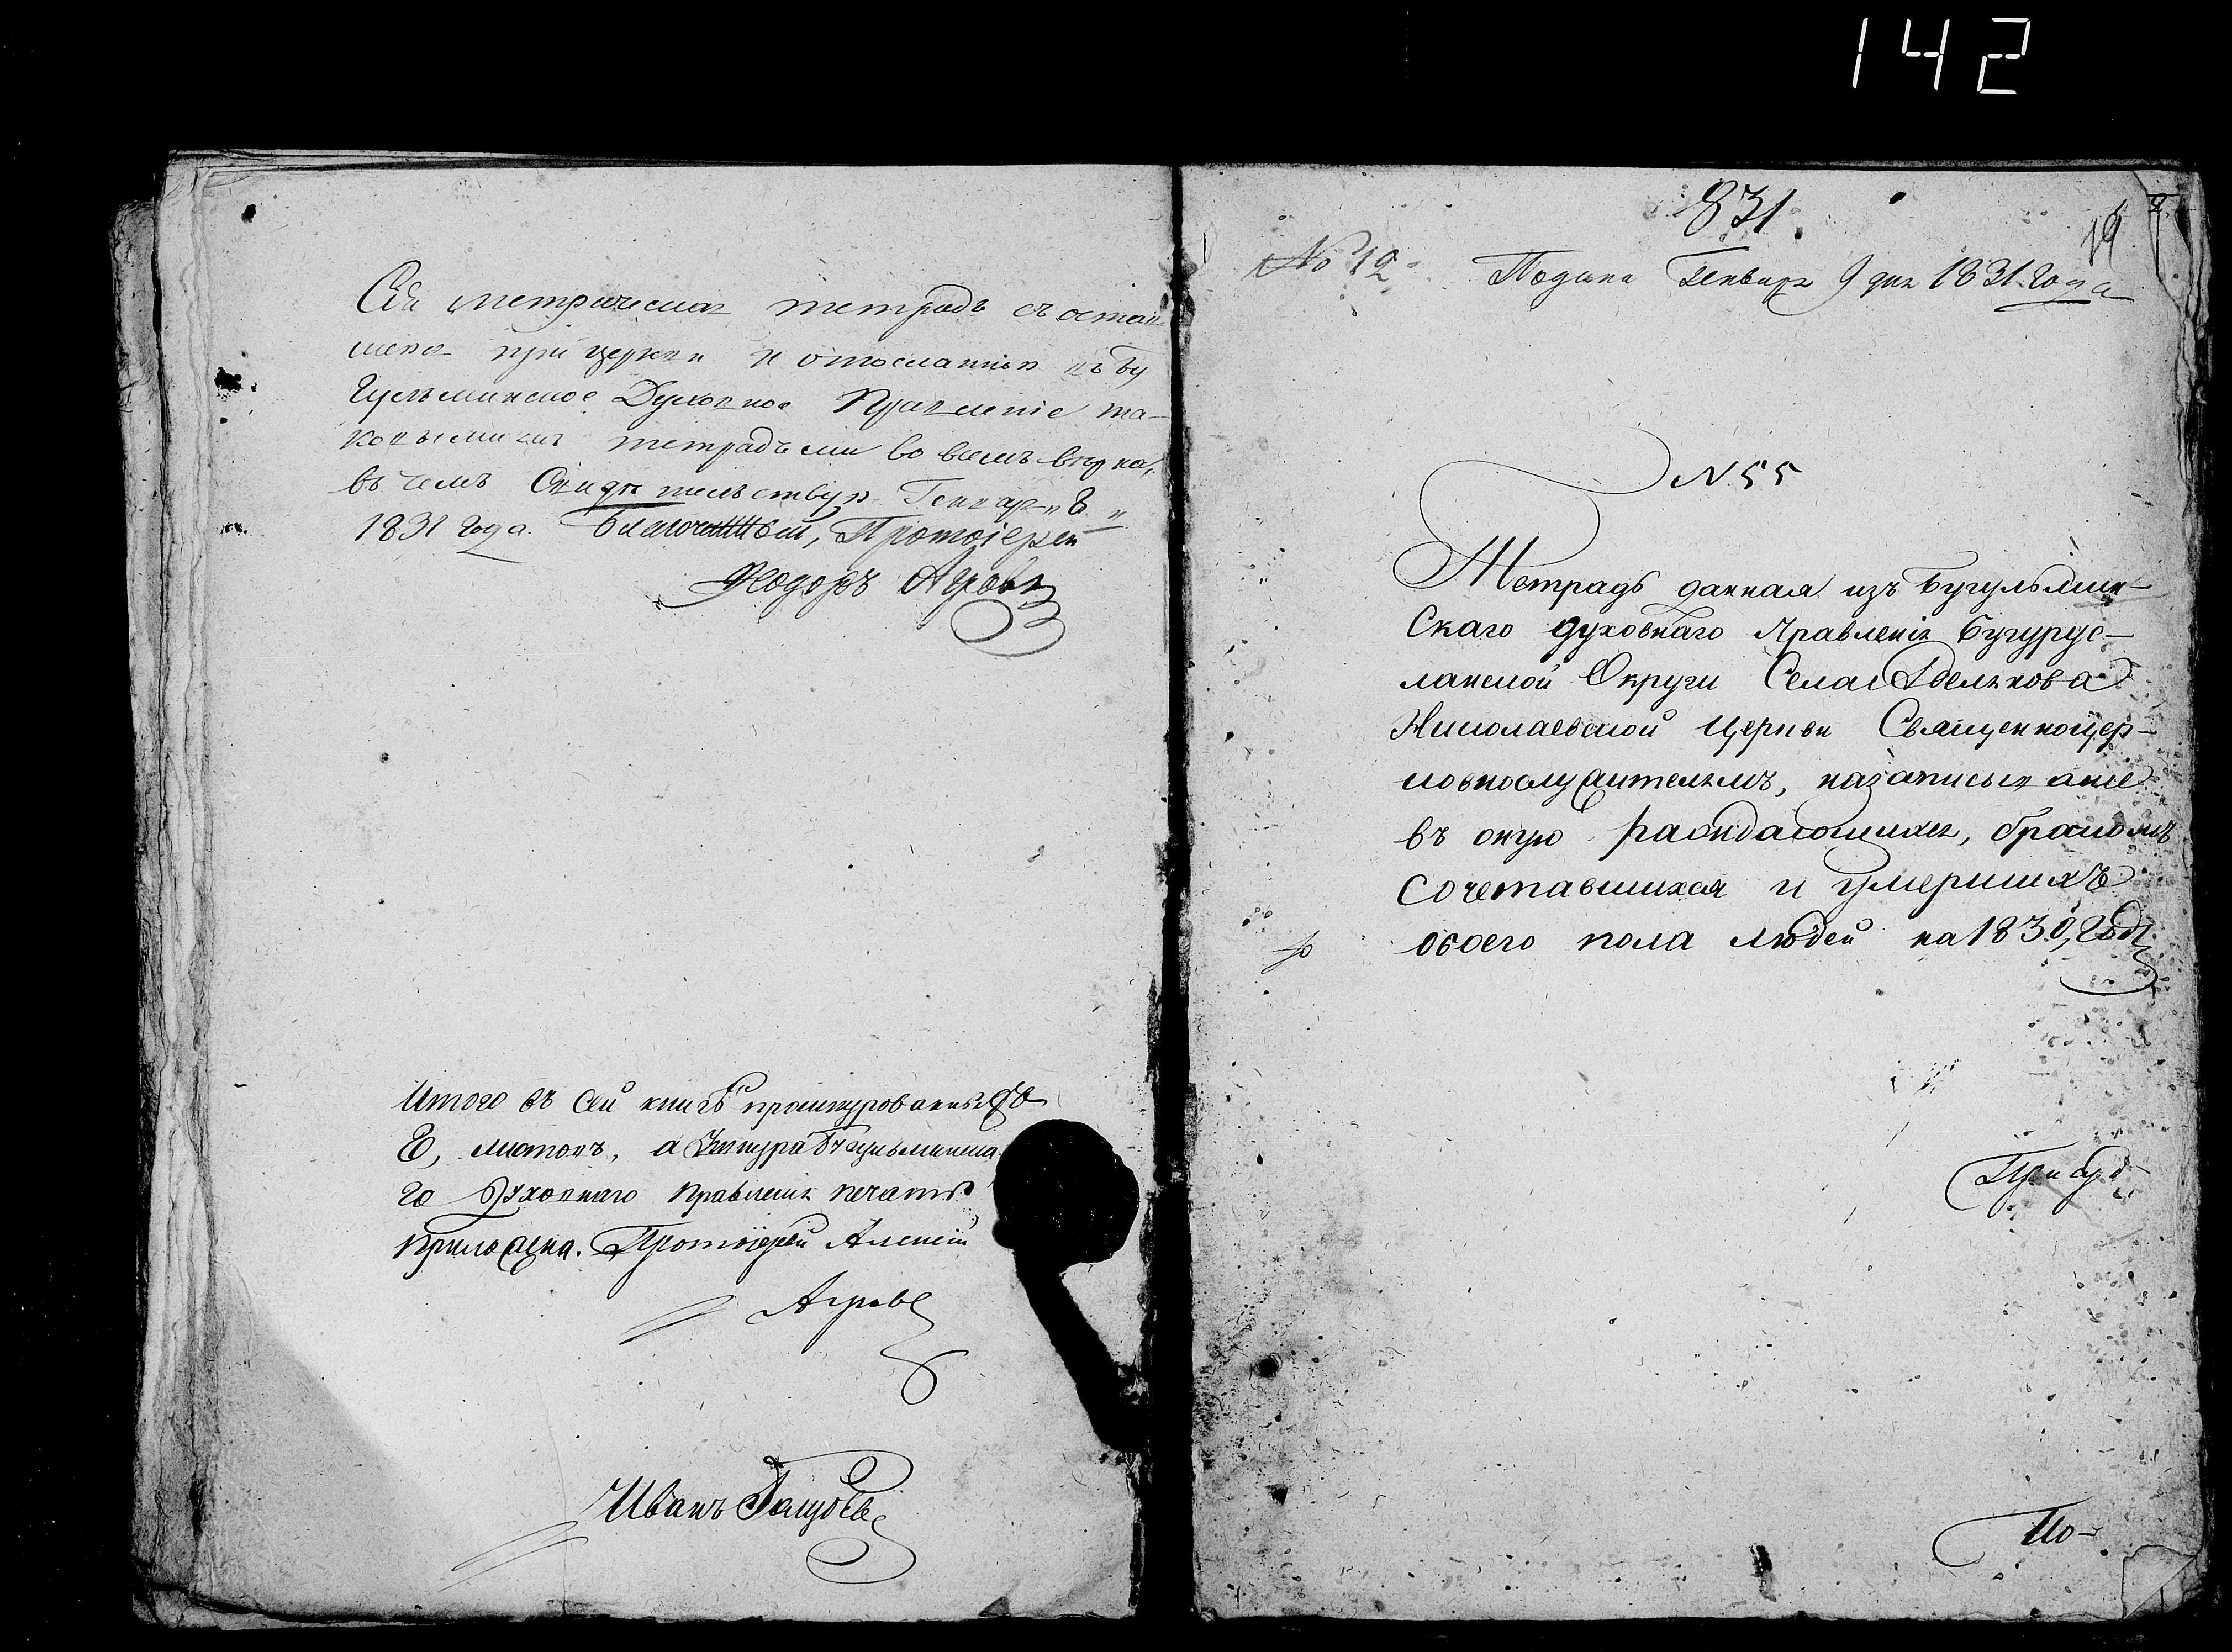 142
Сія метрическая тетрадь съ остав-
шеюся при церкви и отосланною въ Бу
гульминское Духовное Правленіе та-
ковыми тетрадьми во всемъ вѣрна,
въ чемъ Свидѣтельствую Генвар. 8
1831 года. Благочинный, Протоіерей
Ѳеодоръ Агровъ
Итого въ сей книгѣ прошнурованныхъ
8, листовъ, а Шнура Бугульминска
го Духовнаго Правленія печать
приложена. Протоіерей Алексій
Агровъ
Иванъ
831
19
№ 12 Подана Генваря 9 дня 1831 Года
N 55
Тетрадь данная изъ Бугульмин-
скаго духовнаго Правленія Бугурус-
ланской Округи Села Абделкнова
Николаевской Церкви Священноцер-
ковнослужителямъ, на записываніе
въ оную раждающихся, бракомъ
сочетавшихся и умершихъ
обоего пола людей на 1830, Годъ.
По-